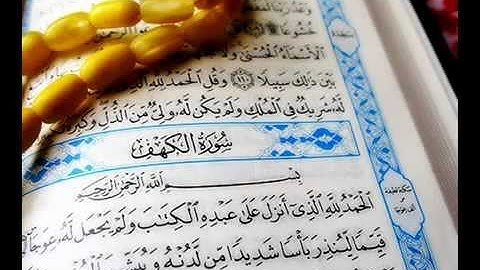 خُشُوعًا
الْأَسْمَاءُ الْحُسْنَىٰ وَلَا
بَيْنَ ذَٰلِكَ سَبِيلًا ۝١١٠ وَقُلِ الْحَمْدُ لِلَّهِ
لَّهُ شَرِيكٌ فِي الْمُلْكِ وَلَمْ يَكُن لَّهُ وَلِيٌّ مِّنَ الذُّلِّ وَكَبِّرْهُ
سُورَةُ الْكَهْفِ
بِسْمِ اللَّهِ الرَّحْمَٰنِ الرَّحِيمِ
الْحَمْدُ لِلَّهِ الَّذِي أَنزَلَ عَلَىٰ عَبْدِهِ الْكِتَابَ وَلَمْ يَجْعَل لَّهُ عِوَجًا
قَيِّمًا لِّيُنذِرَ بَأْسًا شَدِيدًا مِّن لَّدُنْهُ وَيُبَشِّرَ